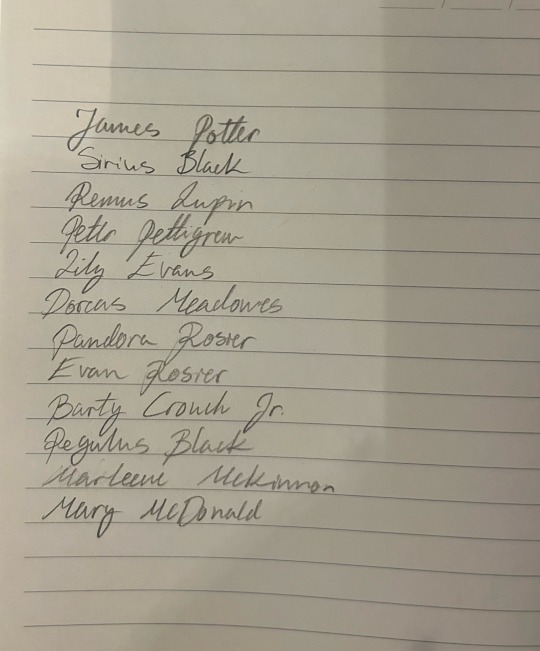 James Potter
Sirius Black
Remus Lupin
Peter Pettigrew
Lily Evans
Dorcas Meadowes
Pandora Rosier
Evan Rosier
Barty Crouch Jr.
Regulus Black
Marleene McKinnon
Mary McDonald